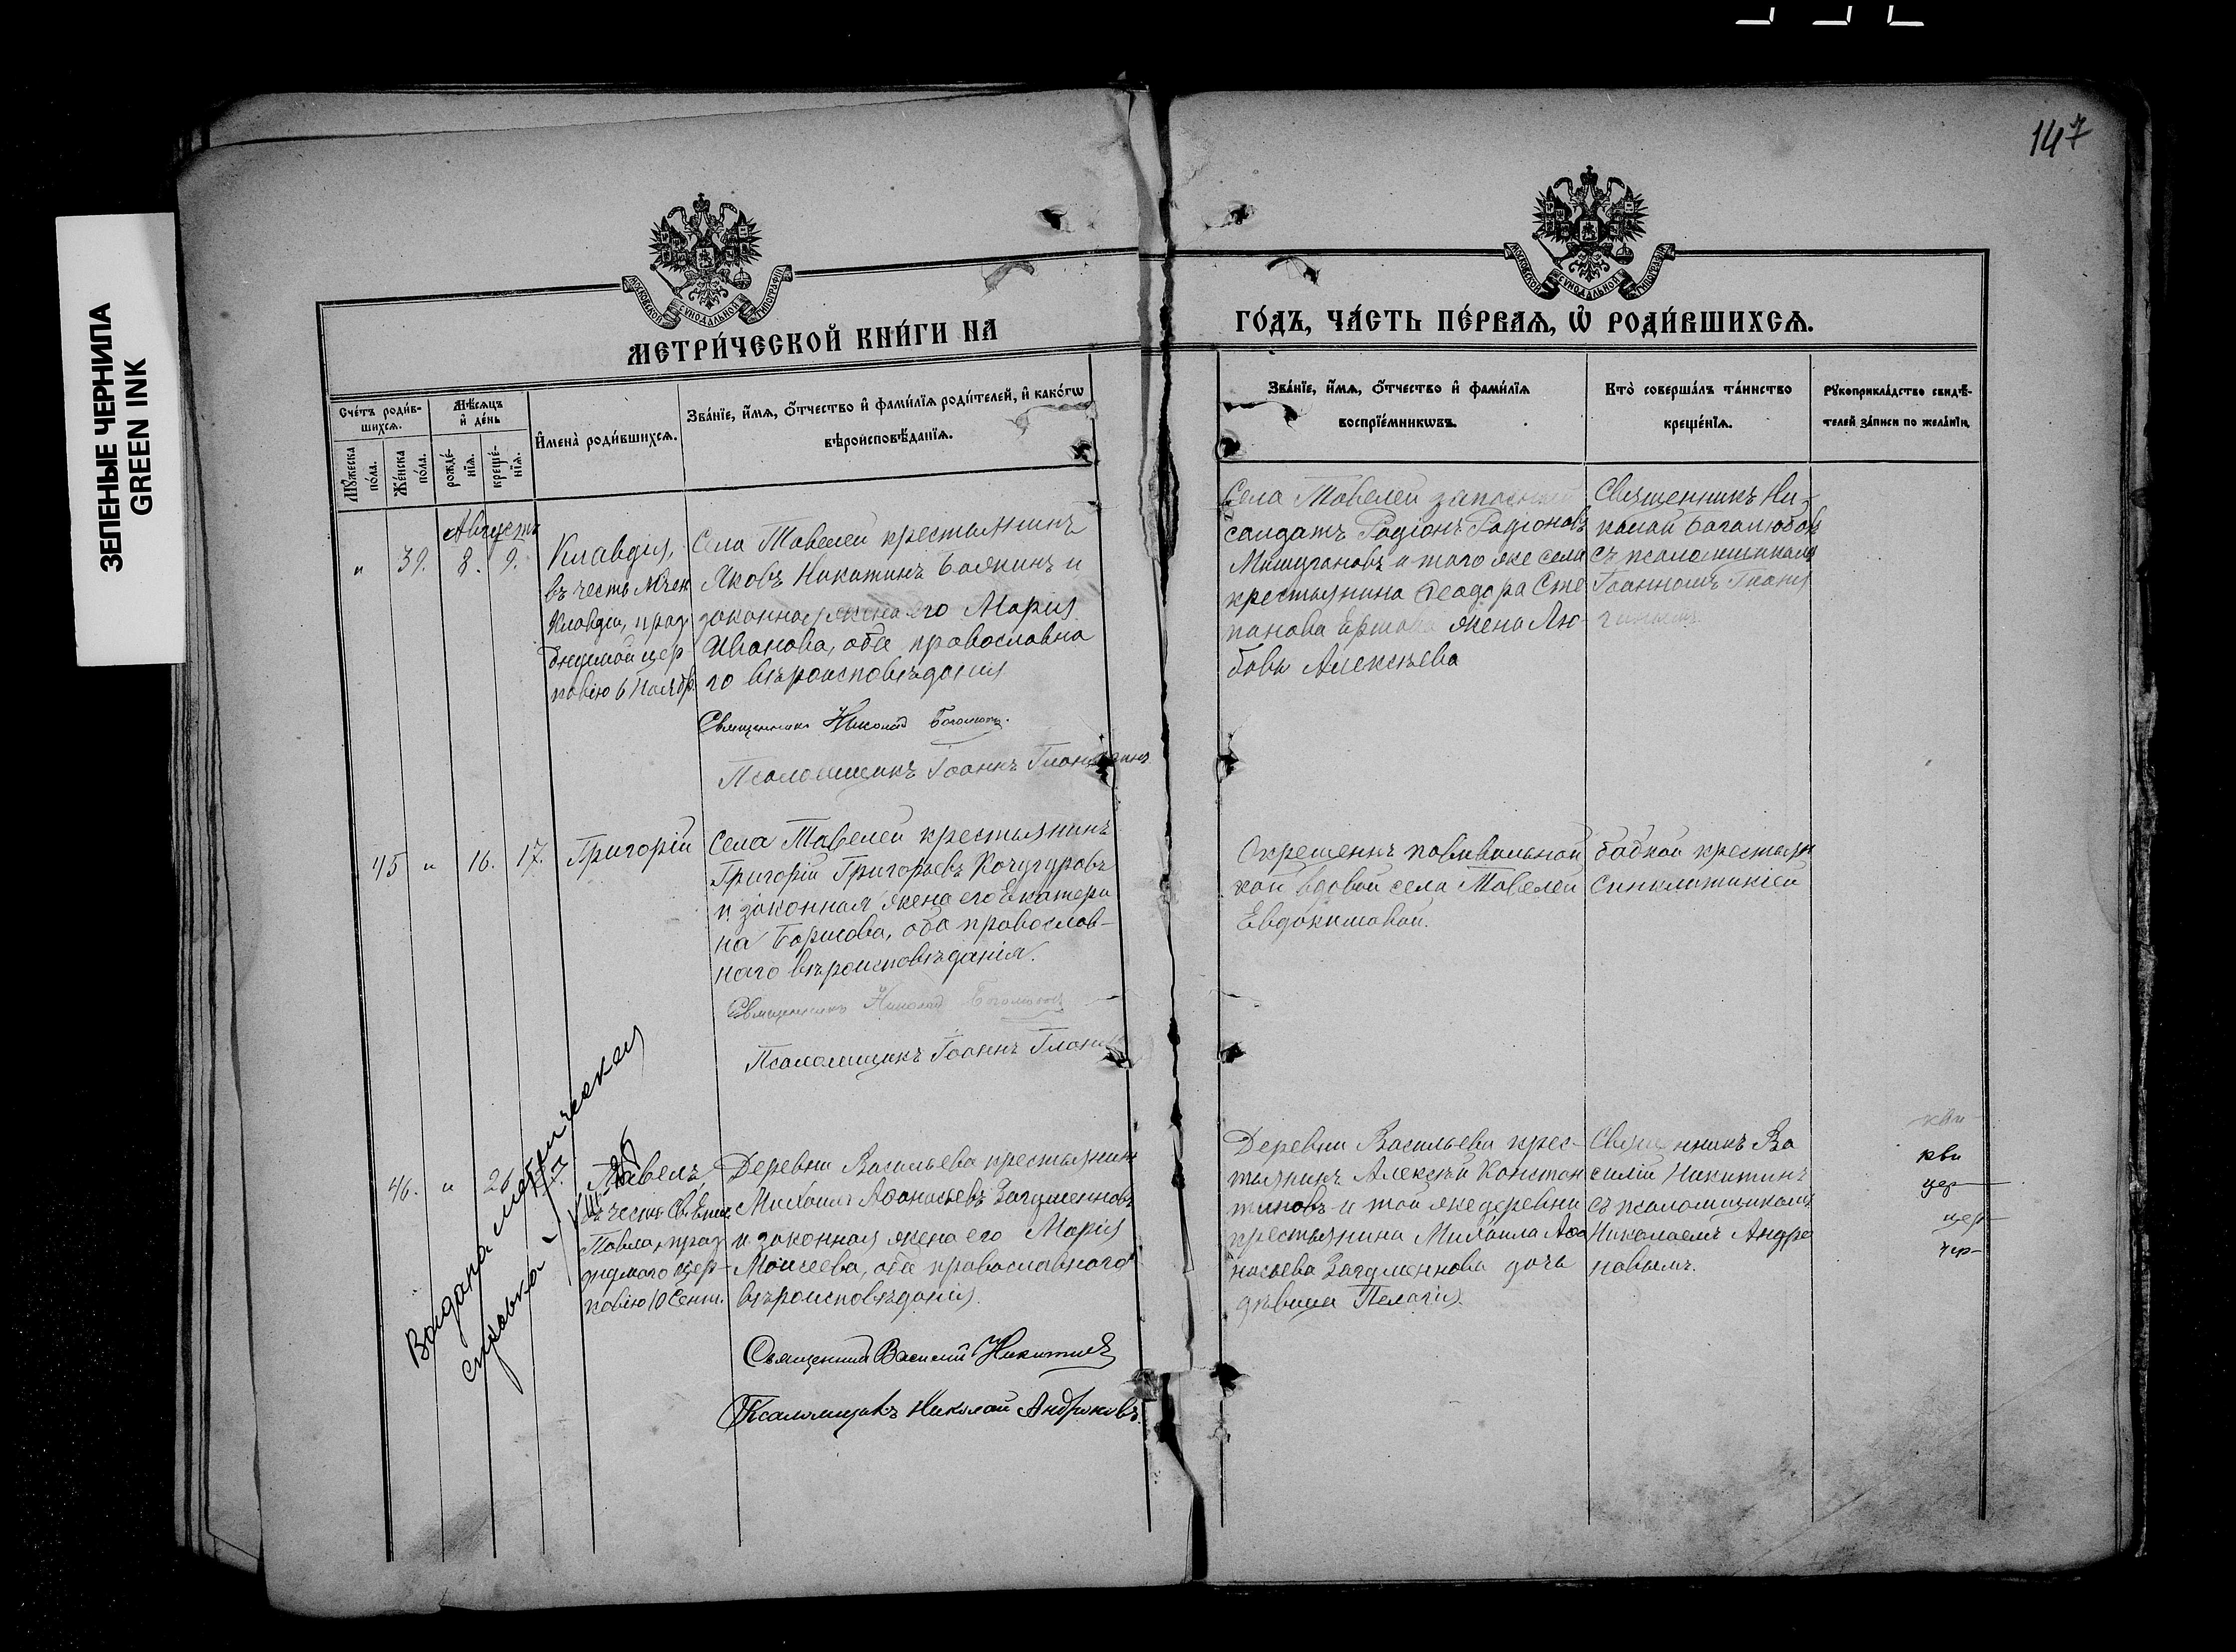 147
ЗЕЛЕНЫЕ ЧЕРНИЛА
GREEN INK
МОСКОВСКОЙ СѴНОДАЛЬНОЙ ТИПОГРАФІИ
МОСКОВСКОЙ СѴНОДАЛЬНОЙ ТИПОГРАФІИ
МЕТРИ́ЧЕСКОЙ КНИ́ГИ НА
ГО́ДЪ, ЧА́СТЬ ПЕ́РВАѦ, Ѡ҆ РОДИ́ВШИХСѦ.
Сче́тъ роди́в-
шихсѧ.
Мꙋ́жеска
по́ла.
Же́нска
по́ла.
Мѣ́сѧцъ
и҆ де́нь
рожде́-
нїѧ.
креще́-
нїѧ.
И҆мена̀ роди́вшихсѧ.
Зва́нїе, и҆́мѧ, ѻ҆́тчество и҆ фами́лїѧ роди́телей, и҆ како́гѡ
вѣроисповѣ́данїѧ.
Зва́нїе, и҆́мѧ, ѻ҆́тчество и҆ фами́лїѧ
воспрїе́мникѡвъ.
Кто̀ соверша́лъ та́инство
креще́нїѧ.
Рꙋкоприкла́дство свидѣ́-
телей за́писи по жела́нїю.
Августъ
" 39. 8. 9.
Клавдія,
въ честь Мчен
Клавдіи, праз
днуемой цер
ковію 6 Ноябр.
Села Тавелей крестьянинъ
Яковъ Никитинъ Баякинъ и
законная жена его Марія
Иванова, оба православна
го вѣроисповѣданія
Священникъ Николай Боголюбовъ.
Псаломщикъ Іоаннъ
Села Тавелей запасный
салдатъ Радіонъ Радіоновъ
Мишугановъ и того же села
крестьянина Ѳеодора Сте
панова Ершова жена Лю
бовь Алексѣева
Священникъ Ни
колай Боголюбовъ
съ псаломщикомъ
Іоанномъ
45 " 16. 17.
Григорій
Села Тавелей крестьянинъ
Григорій Григорьевъ Кочугуровъ
и законная жена его Екатери
на Борисова, оба православ-
наго вѣроисповѣданія.
Священникъ Николай Боголюбовъ
Псаломщикъ Іоаннъ
Окрещенъ повивальной бабкой крестьян
кой вдовой села Тавелей Синклитикіей
Евдокимовой.
46. " 26 27.
Павелъ,
въ честь
Павла, праз
днуемаго цер-
ковію 10 Сент.
Деревни Васильева крестьянинъ
Михаилъ Аѳанасьевъ Загуменновъ
и законная жена его Марія
Моисеева, оба православнаго
вѣроисповѣданія.
Священникъ Василій Никитинъ
Псаломщикъ Николай Андроновъ.
Деревни Васильева крес-
тьянинъ Алексѣй Констан
тиновъ и той же деревни
крестьянина Михаила Аѳа
насьева Загуменнова дочь
дѣвица Пелагія.
Священникъ Ва
силій Никитинъ
съ псаломщикомъ
Николаемъ Андро
новымъ.
Выдана метрическая
справка
кви
кви
цер
цер
чер